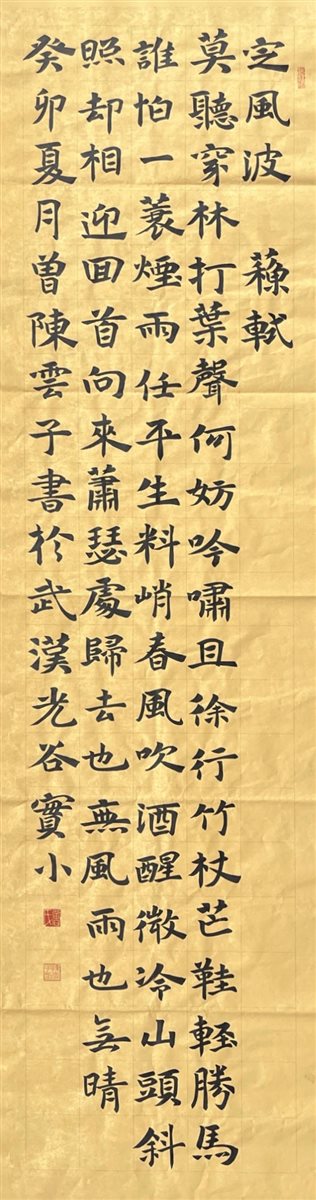 定風波　蘓軾
莫聽穿林打葉聲何妨吟嘯且徐行竹杖芒鞋輕勝馬
誰怕一蓑煙雨任平生料峭春風吹酒醒微冷山頭斜
照却相迎回首向來蕭瑟處歸去也無風雨也無晴
癸卯夏月曾陳雲子書於武漢光谷實小